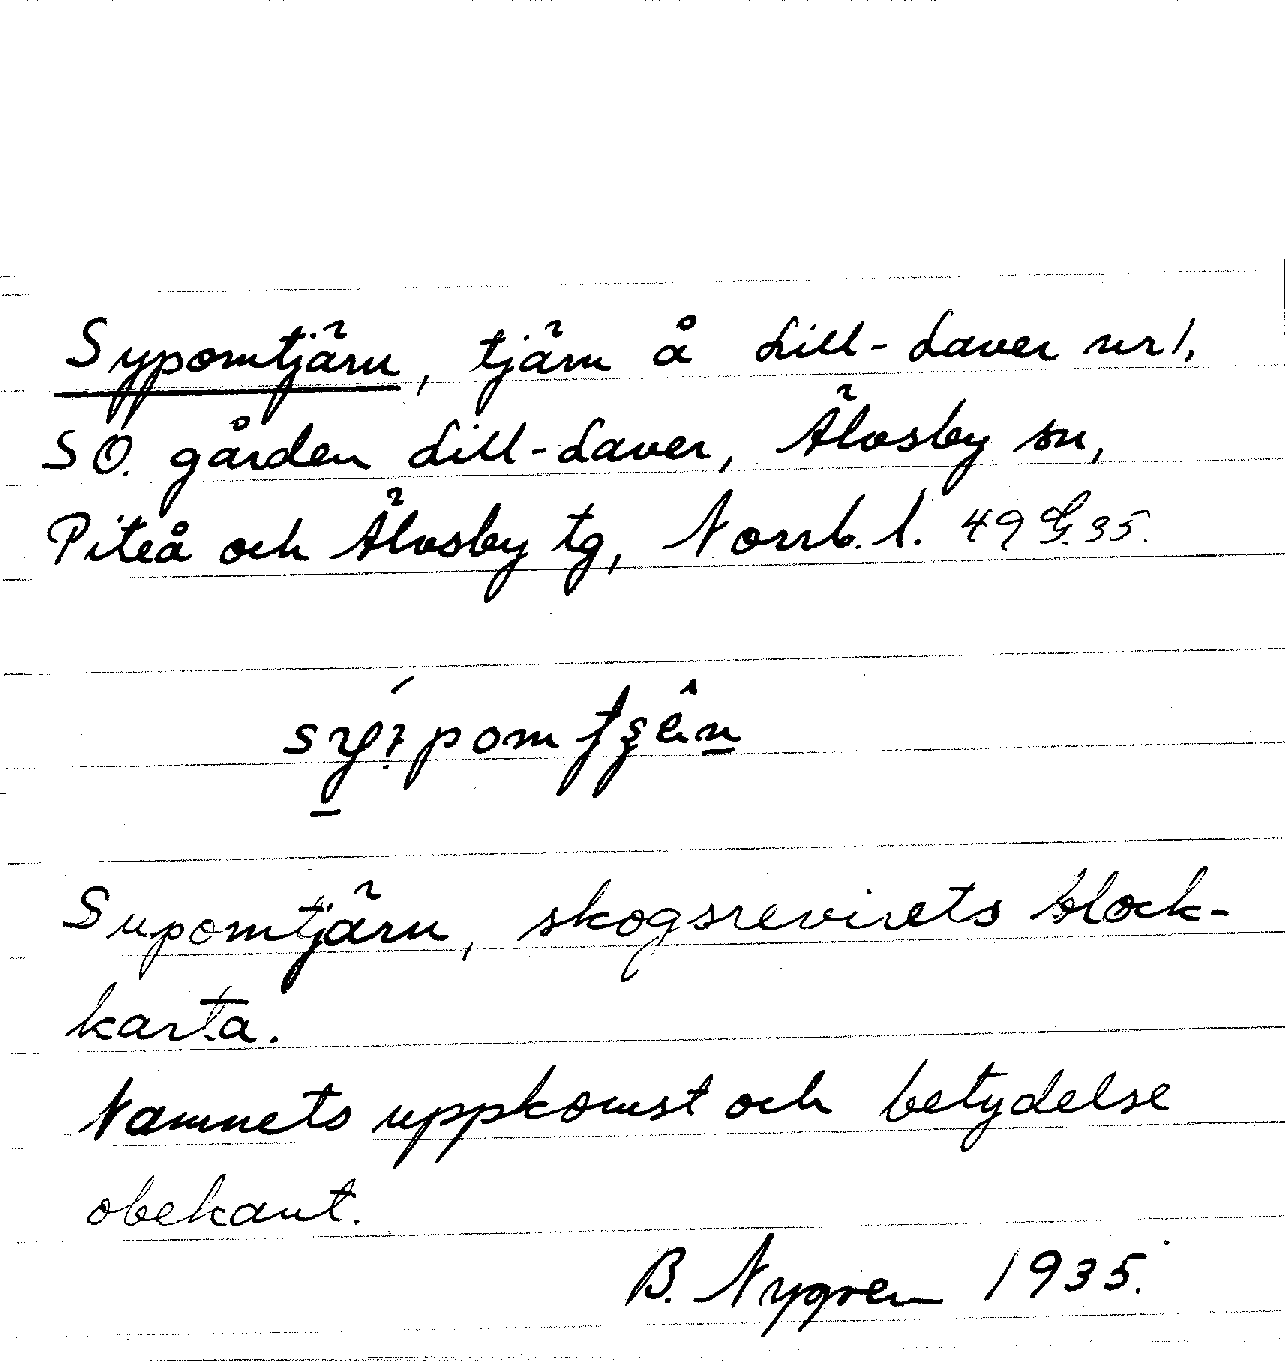 Sypomtjärn, tjärn å Lill-Laver nr 1,
SO. gården Lill-Laver, Älvsby sn,
Piteå och Älvsby tg, Norrb. l. 49 G. 35.
Supomtjärn, skogsrevirets block-
karta.
Namnets uppkomst och betydelse
obekant.
B. Nygren 1935.